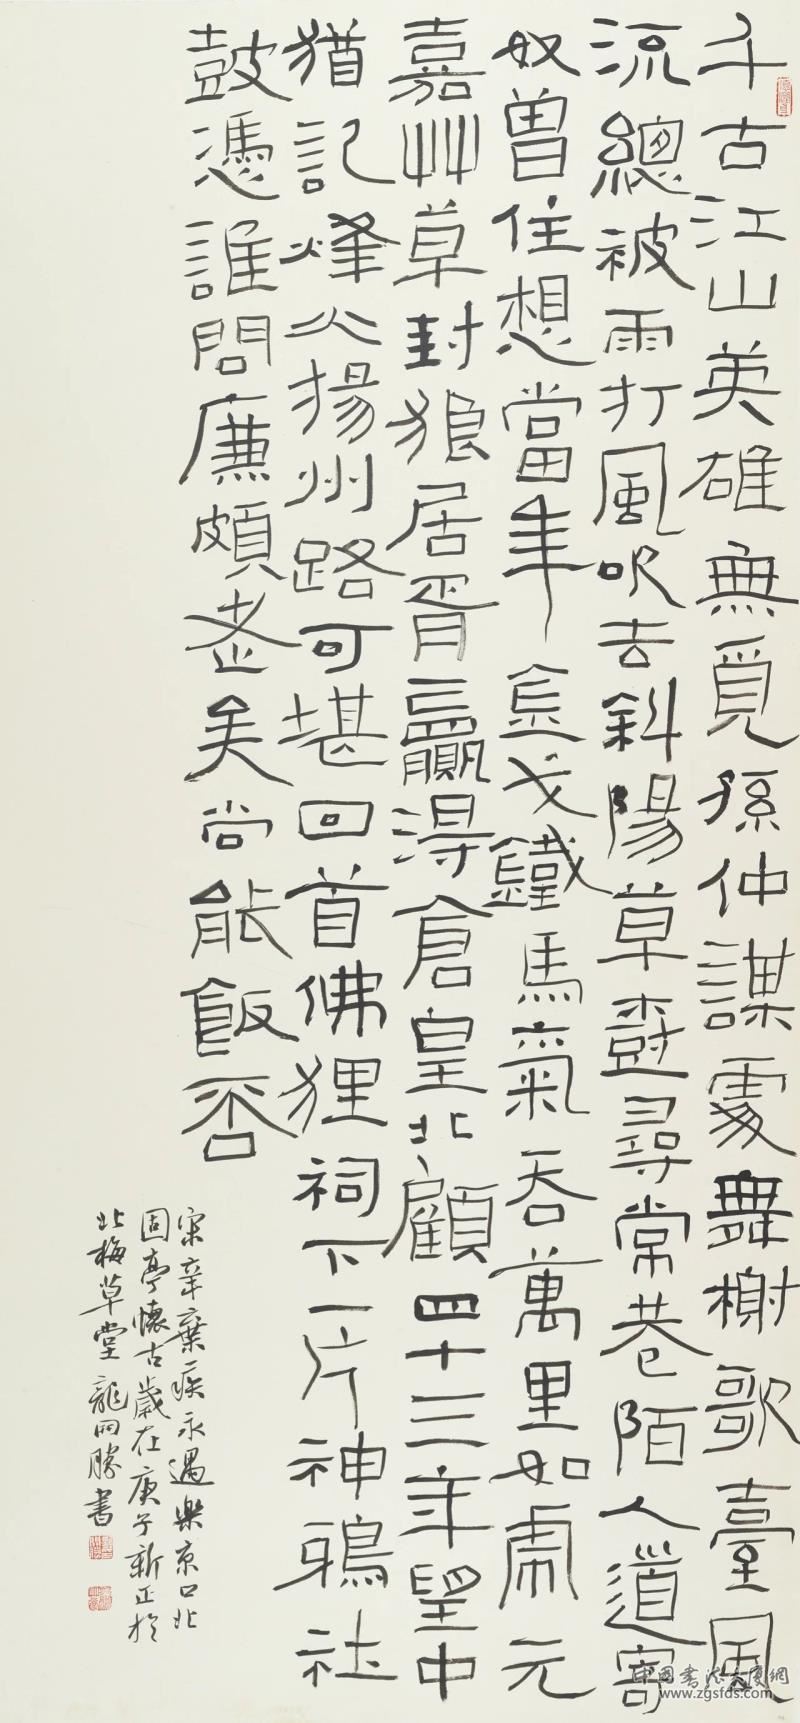 千古江山英雄無覓孫仲謀處舞榭歌臺風
流總被雨打風吹去斜陽草樹尋常巷陌人道寄
奴曾住想當年金戈鐵馬氣吞萬里如虎元
嘉艸草封狼居胥贏得倉皇北顧四十三年望中
猶記烽火揚州路可堪回首佛狸祠下一片神鴉社
鼓憑誰問廉頗老矣尚能飯否
宋辛棄疾永遇樂京口北
固亭懷古歲在庚子新正於
北梅草堂龍開勝書
中国书法大厦网
www.zgsfds.com